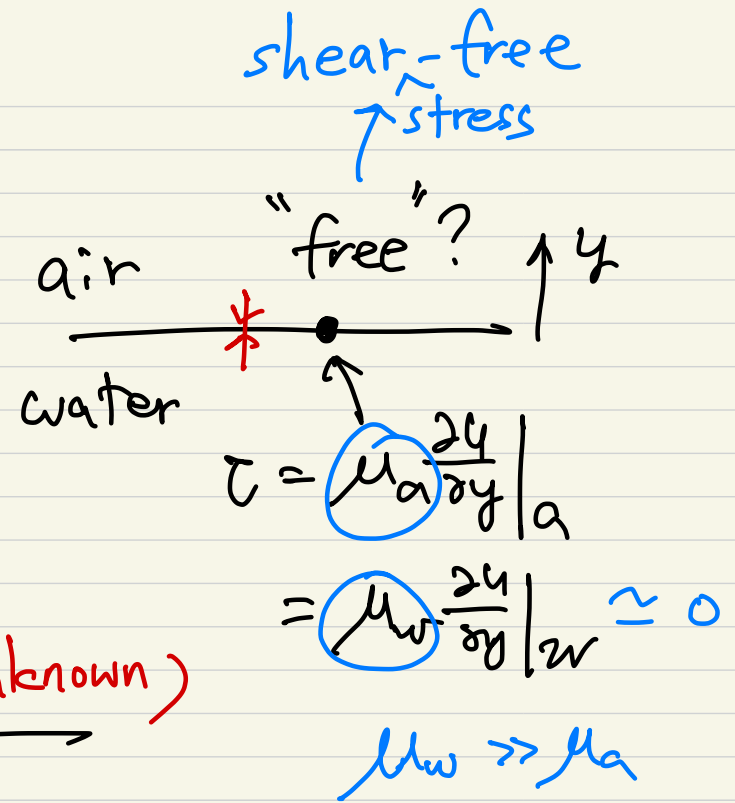 shear-free
^stress
"free"?
air
y
water
τ = μₐ ∂u/∂y|ₐ
= μ_w ∂u/∂y|_w ≃ 0
known)
μ_w ≫ μₐ